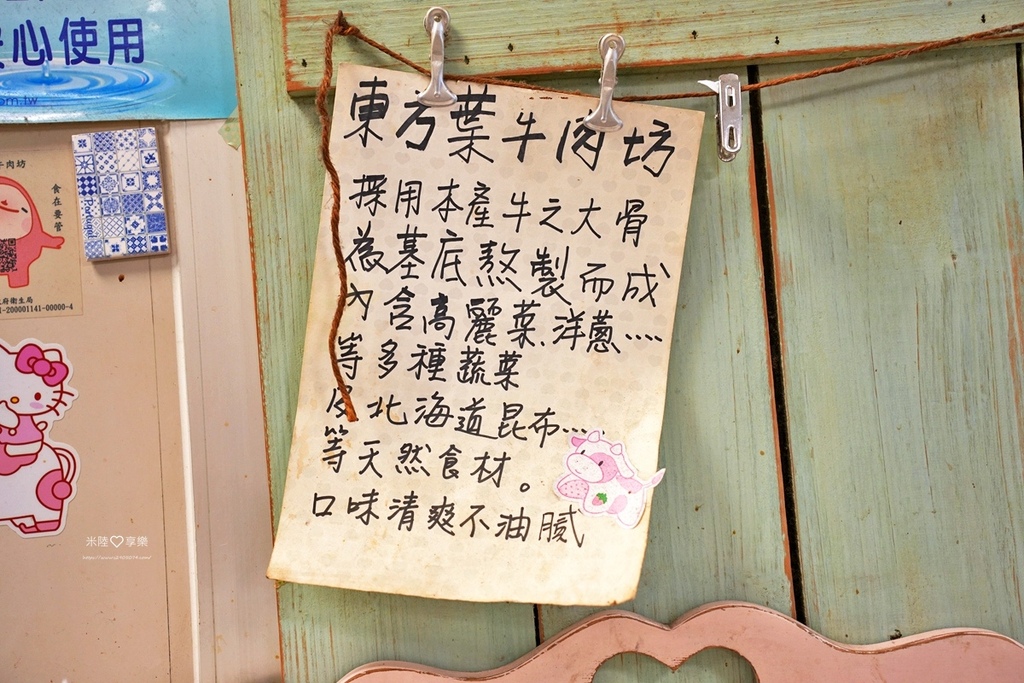 安心使用
om.tw
牛肉坊
食在安管
府衛生局
-200001141-00000-4
Portugal
東方葉牛肉坊
採用本產牛之大骨
為基底熬製而成
內含高麗菜.洋蔥....
等多種蔬菜
及北海道昆布....
等天然食材。
口味清爽不油膩
米陸♡享樂